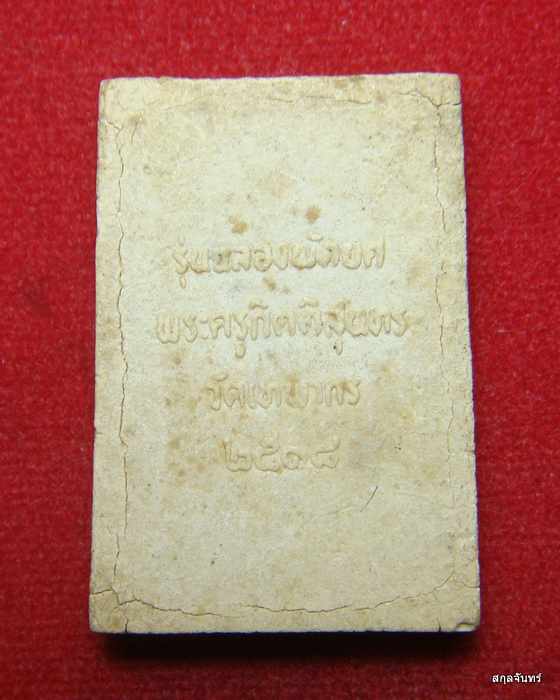 รุ่นฉลองพัดยศ
พระครูกิตติสุนทร
วัดเขานากร
๒๕๑๘
สกุลจันทร์